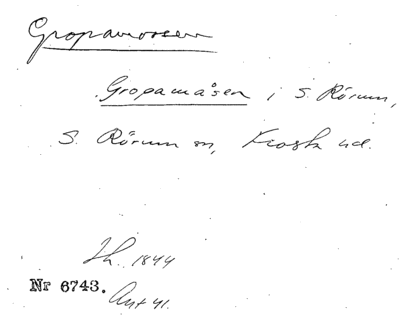 Gropamossen
Gropamåsen i S. Rörum,
S. Rörum sn, Frosta hd.
Lh. 1844
Nr 6743.
Ant 41.